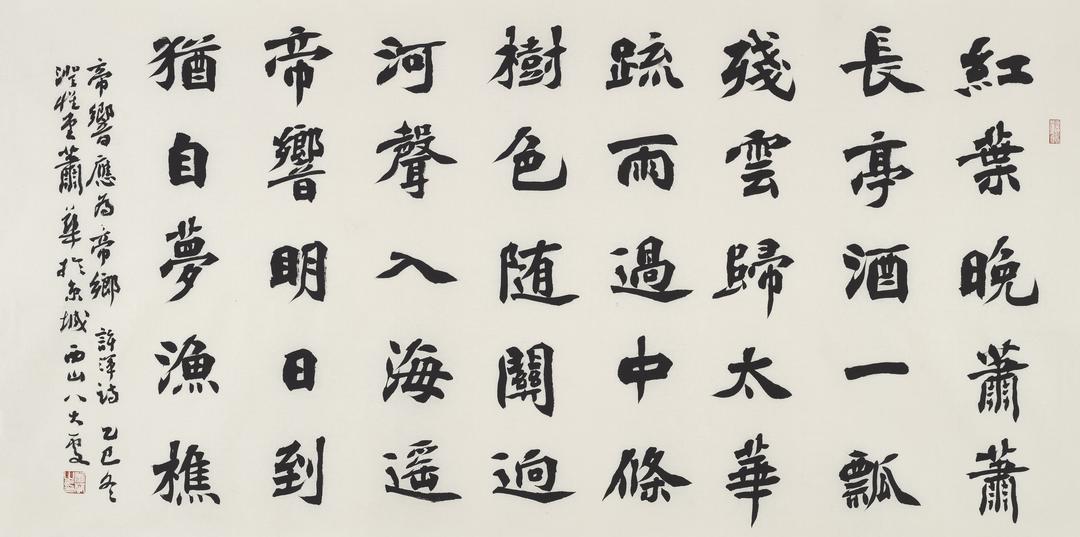 紅葉晚蕭蕭
長亭酒一瓢
殘雲歸太華
䟽雨過中條
樹色随關迥
河聲入海遥
帝響明日到
猶自夢漁樵
帝響應為帝鄉 許渾詩 乙巳冬
蕭華於京城西山八大處